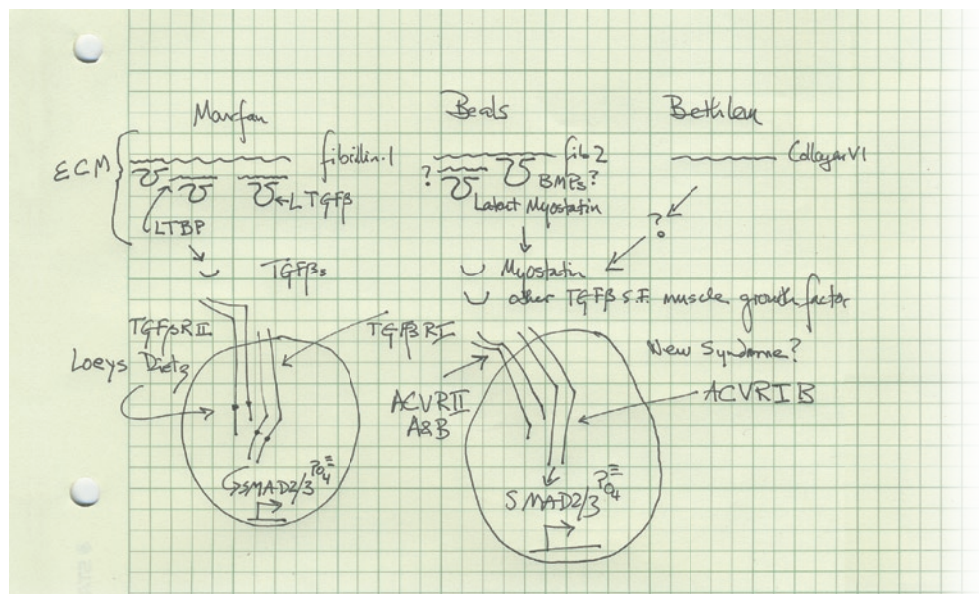 Marfan Beals Bethlem
ECM
fibrillin-1 fib2 Collagen VI
? BMPs?
← L TGFβ
Latent Myostatin
LTBP
?
TGFβs Myostatin
other TGFβ S.F. muscle growth factor
TGFβRII TGFβRI
New Syndrome?
Loeys Dietz
ACVRII ACVRIB
A&B
SMAD2/3 PO4≡
SMAD2/3 PO4≡